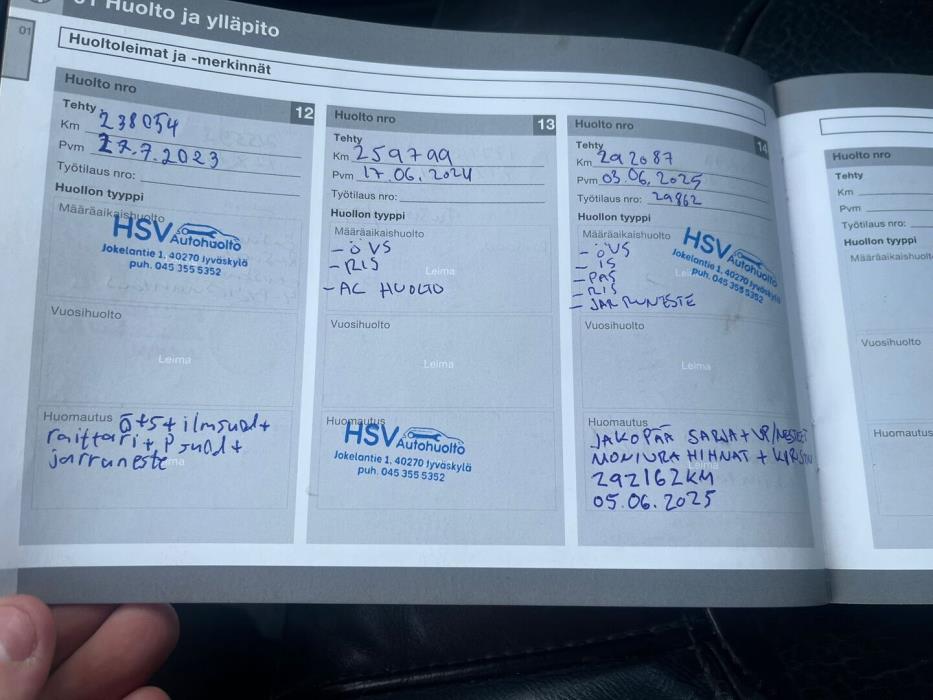 01 Huolto ja ylläpito
01
Huoltoleimat ja -merkinnät
Huolto nro
12
Tehty
Km 238054
Pvm 27.7.2023
Työtilaus nro:
Huollon tyyppi
Määräaikaishuolto
HSV Autohuolto
Jokelantie 1, 40270 Jyväskylä
puh. 045 355 5352
Vuosihuolto
Leima
Huomautus ö+s+ilmsuod+
raittari+p suod+
jarruneste
Huolto nro
13
Tehty
Km 259799
Pvm 17.06.2024
Työtilaus nro:
Huollon tyyppi
Määräaikaishuolto
- ÖVS
- RIS
Leima
- AC HUOLTO
Vuosihuolto
Leima
Huomautus
HSV Autohuolto
Jokelantie 1, 40270 Jyväskylä
puh. 045 355 5352
Huolto nro
14
Tehty
Km 292087
Pvm 03.06.2025
Työtilaus nro: 29862
Huollon tyyppi
Määräaikaishuolto
- ÖVS
- IS
- PAS
- RIS
- JARRUNESTE
HSV Autohuolto
Jokelantie 1, 40270 Jyväskylä
puh. 045 355 5352
Vuosihuolto
Leima
Huomautus
JAKOPÄÄ SARJA + VP/NESTEET
MONIURA HIHNAT +
292162KM
05.06.2025
Huolto nro
Tehty
Km
Pvm
Työtilaus nro:
Huollon tyyppi
Määräaikaishuolt
Vuosihuolto
Huomautus